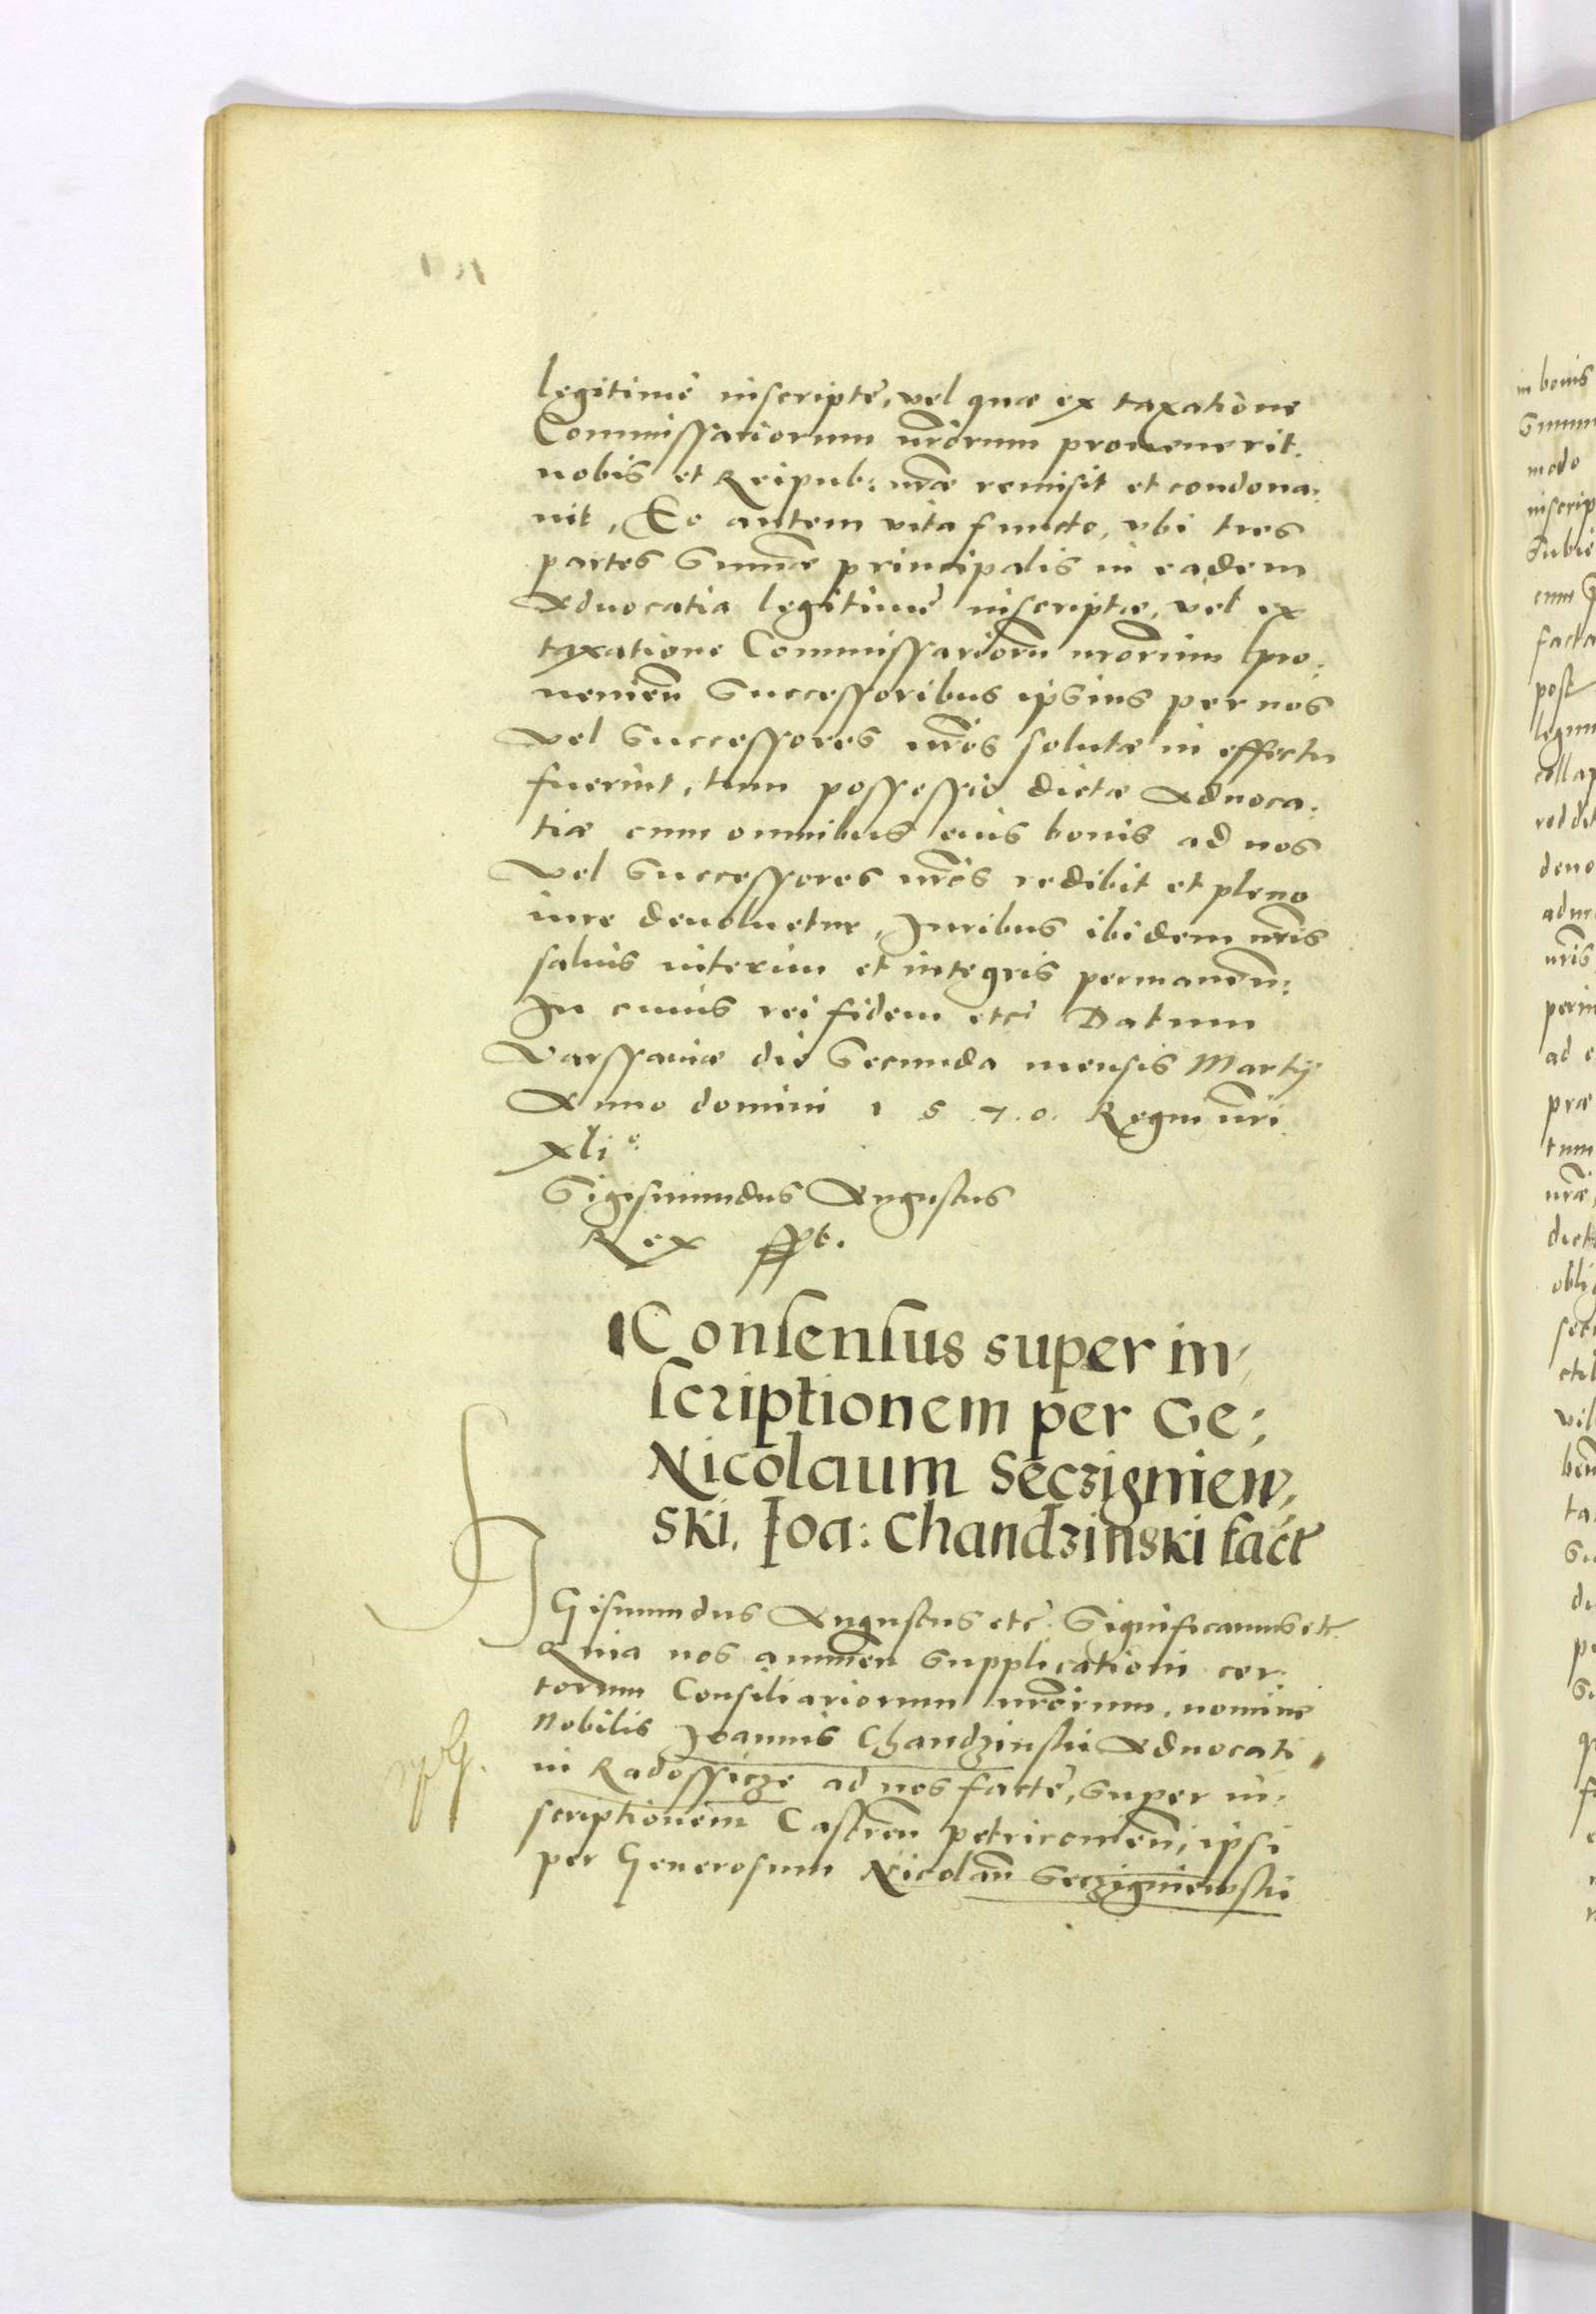 legitime inscripte, vel quæ ex taxatione
Commissariorum nrorum prouenerit.
nobis et Reipub: nræ remisit et condona:
uit, Eo autem vita functo, vbi tres
partes Summæ principalis in eadem
Aduocatia legitime inscriptæ, vel ex
taxatione Commissariorũ nrorum pro:
uenieñ Successoribus ipsius per nos
vel Successores nros solutæ in effectu
fuerint, tum possessio dictæ Aduoca:
tiæ cum omnibus eius bonis ad nos
vel Successores nros redibit et pleno
iure deuoluetur, Juribus ibidem nris
saluis interim et integris permaneñ:
In cuius rei fidem etc Datum
Varssauiæ die Secunda mensis Martij
Anno domini 1 5 7.0. Regni nri
xli°
Sigismundus Augustus
Rex sspt.
Consensus super in,
scriptionem per Ge:
Nicolaum Seczigniew,
ski. Ioa: Chandzinski fact
Gismundus Augustus etc. Significamus etc.
Quia nos annueñ Supplicationi cer:
torum Consiliariorum nrorum, nomine
Nobilis Joannis Chandzinski Aduocati
in Radossicze ad nos factę, Super in:
scriptionem Castreñ petricouieñ, ipsi
per Generosum Nicolaũ Seczigniewski
in bonis
modo
inscrip
Subie
facta
post
collap
perin
ad e
præ
tum
nræ
dict
oblig